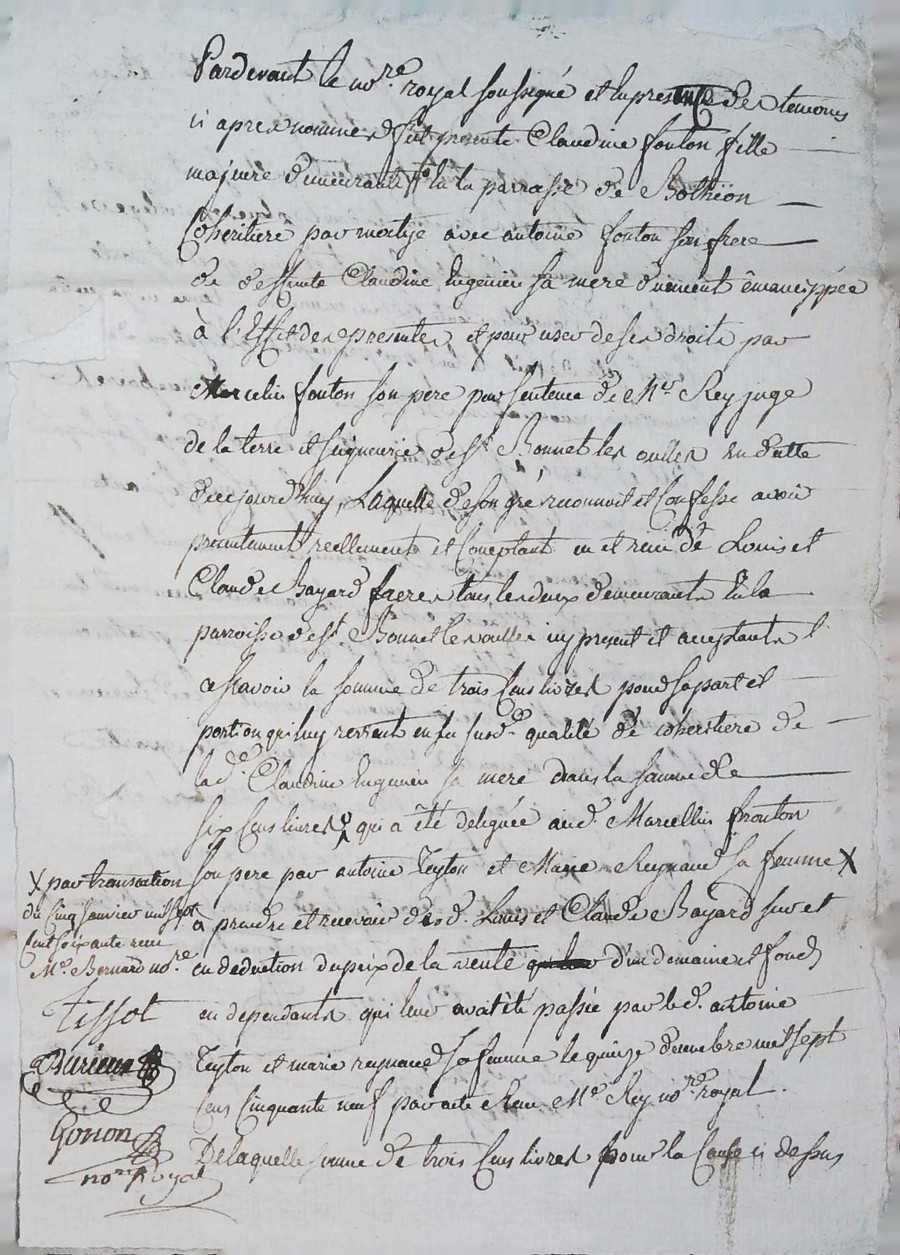 Pardevant le no.re royal soussigné et en presence des temoins
ci apres nommes fut presente Claudine fonton fille
majeure demeurante en la parroisse de Bothéon
Coheritiere par moitye avec antoine fonton son frere
de deffunte Claudine Engenieu sa mere duement émancippée
à l'Effet des presentes et pour user de ses droits par
Marcelin fonton son pere par sentence de Mr. Rey juge
de la terre et seigneurie de st. Bonnet les oulles en datte
de cejourd'huy, Laquelle de son gré reconnoit et Confesse avoir
presentement reellement et Comptant eu et reçu de Louis et
Claude Bayard freres tous les deux demeurants en la
parroisse de st. Bonnet les oulles icy present et acceptants
assavoir la somme de trois Cens livres pour sa part et
portion qui luy revient en sa susd. qualité de coheritiere de
la de. Claudine Engenieu sa mere dans la somme de
six Cens livres qui a été deleguée aud. Marcellin fronton
son pere par antoine Teyton et Marie Reynaud sa femme X
à prendre et recevoir desd. Louis et Claude Bayard sur et
en deduction du prix de la vente d'un domaine et fonds
en dependants qui leur avoit été passée par led. antoine
Teyton et marie reynaud sa femme le quinze decembre mil sept
Cens Cinquante neuf par acte reçu Me. Rey no.re royal.
De laquelle somme de trois Cens livres pour la Cause ci dessus
X par transaction
du Cinq janvier mil sept
Cent soixante recue
Me. Bernard no.re
Tissot
Durieux
Gonon
no.re Royal